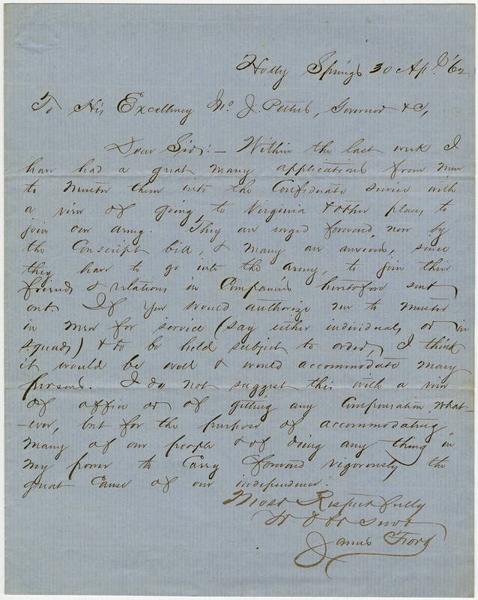 Holly Springs 30 Apl. '62
To His Excellency Jno. J. Pettus, Governor &c,
Dear Sir:- Within the last week I
have had a great many applications from men
to muster them into the Confederate service with
a view of going to Virginia & other places to
join our army. They are urged forward now by
the Conscript bill, & many are anxious, since
they have to go into the army, to join their
friends & relations in Companies heretofore sent
out. If you would authorize me to muster
in men for service (say either individuals or in
squads) & to be held subject to order, I think
it would be well & would accommodate many
persons. I do not suggest this with a view
of office or of getting any Compensation what-
-ever, but for the purpose of accommodating
many of our people & of doing any thing in
my power to Carry forward vigorously the
great Cause of our independence.
Most Respectfully
Yr Obt Servt
James